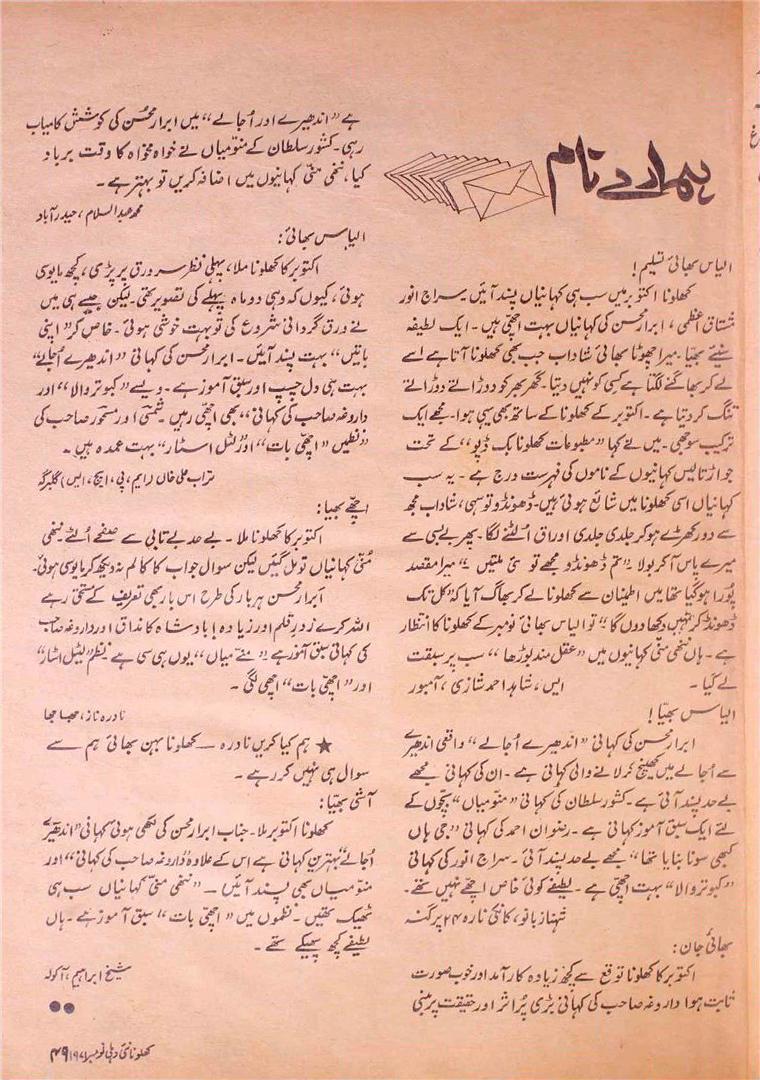 ہمارے نام
الیاس بھائی تسلیم!
کھلونا اکتوبر میں سب ہی کہانیاں پسند آئیں سراج انور
مشتاق اعظمی، ابرار محسن کی کہانیاں بہت اچھی ہیں۔ ایک لطیفہ
سنیئے بھیّا۔ میرا چھوٹا بھائی شاداب جب بھی کھلونا آتا ہے اسے
لے کر بھاگنے لگتا ہے کسی کو نہیں دیتا۔ گھر بھر کو دوڑاتے دوڑاتے
تنگ کر دیتا ہے۔ اکتوبر کے کھلونا کے ساتھ بھی یہی ہوا۔ مجھے ایک
ترکیب سوجھی۔ میں نے کہا “مطبوعات کھلونا بک ڈپو” کے تحت
جو اڑتالیس کہانیوں کے ناموں کی فہرست درج ہے۔ یہ سب
کہانیاں اسی کھلونا میں شائع ہوئی ہیں۔ ڈھونڈو تو سہی، شاداب مجھ
سے دور کھڑے ہو کر جلدی جلدی اوراق اُلٹنے لگا۔ پھر بے بسی سے
میرے پاس آ کر بولا “تم ڈھونڈو مجھے تو نئی ملتیں” میرا مقصد
پُورا ہو گیا تھا میں اطمینان سے کھلونا لے کر بھاگ آیا کہ “کل تک
ڈھونڈ کر تمہیں دکھا دوں گا” تو الیاس بھائی نومبر کے کھلونا کا انتظار
ہے۔ ہاں ننھی منّی کہانیوں میں “عقل مند بوڑھا” سب پر سبقت
لے گیا۔ ایس، شاہد احمد شازی، آمبور
الیاس بھیّا!
ابرار محسن کی کہانی “اندھیرے اُجالے” واقعی اندھیرے
سے اُجالے میں کھینچ کر لانے والی کہانی ہے۔ ان کی کہانی مجھے
بے حد پسند آئی ہے۔ کشور سلطان کی کہانی “منّو میاں” بچّوں کے
لئے ایک سبق آموز کہانی ہے۔ رضوان احمد کی کہانی “جی ہاں
کبھی سونا بنایا تھا” مجھے بے حد پسند آئی۔ سراج انور کی کہانی
“کبوتر والا” بہت اچھی ہے۔ لطیفے کوئی خاص اچھے نہیں تھے۔
شہناز بانو، کانکی نارہ ۲۴ پرگنہ
بھائی جان:
اکتوبر کا کھلونا توقع سے کچھ زیادہ کارآمد اور خوب صورت
ثابت ہوا داروغہ صاحب کی کہانی بڑی پُر اثر اور حقیقت پر مبنی
ہے “اندھیرے اور اُجالے” میں ابرار محسُن کی کوشش کامیاب
رہی۔ کشور سلطان کے منّو میاں نے خواہ مخواہ کا وقت برباد
کیا، ننھی منّی کہانیوں میں اضافہ کریں تو بہتر ہے۔
محمد عبدالسلام، حیدرآباد
الیاس بھائی:
اکتوبر کا کھلونا ملا، پہلی نظر سرورق پر پڑی، کچھ مایوسی
ہوئی، کیوں کہ وہی دو ماہ پہلے کی تصویر تھی۔ لیکن جیسے ہی میں
نے ورق گردانی شروع کی تو بہت خوشی ہوئی۔ خاص کر “اپنی
باتیں” بہت پسند آئیں۔ ابرار محسن کی کہانی “اندھیرے اُجالے”
بہت ہی دل چسپ اور سبق آموز ہے۔ ویسے “کبوتر والا” اور
داروغہ صاحب کی کہانی” بھی اچھی رہیں۔ شمسی اور مسحور صاحب کی
“نظمیں “اچھی بات” اور “لٹل اسٹار” بہت عمدہ ہیں۔
تراب علی خاں (ایم، پی، ایچ، ایس) گلبرگہ
اچھے بھیا:
اکتوبر کا کھلونا ملا۔ بے حد بے تابی سے صفحے اُلٹے۔ ننھی
مُنّی کہانیاں تو مل گئیں لیکن سوال جواب کا کالم نہ دیکھ کر مایوسی ہوئی۔
ابرار محسن ہر بار کی طرح اس بار بھی تعریف کے مستحق رہے
اللہ کرے زورِ قلم اور زیادہ! بادشاہ کا مذاق اور داروغہ صاحب
کی کہانی سبق آموز ہے “منّے میاں” یوں ہی سی ہے نظم “لٹل اسٹار”
اور “اچھی بات” اچھی لگی۔
نادرہ ناز، جھاجھا
★ ہم کیا کریں نادرہ — کھلونا بہن بھائی ہم سے
سوال ہی نہیں کر رہے۔
آشی بھیّا:
کھلونا اکتوبر ملا۔ جناب ابرار محسن کی لکھی ہوئی کہانی “اندھیرے
اُجالے” بہترین کہانی ہے اس کے علاوہ “داروغہ صاحب کی کہانی” اور
منّو میاں بھی پسند آئیں — “ننھی منّی” کہانیاں سب ہی
ٹھیک تھیں۔ نظموں میں “اچھی بات” سبق آموز ہے۔ ہاں
لطیفے کچھ پھیکے تھے۔
شیخ ابراہیم، آکولہ
کھلونا نئی دہلی نومبر ۱۹۷۱ ۴۹